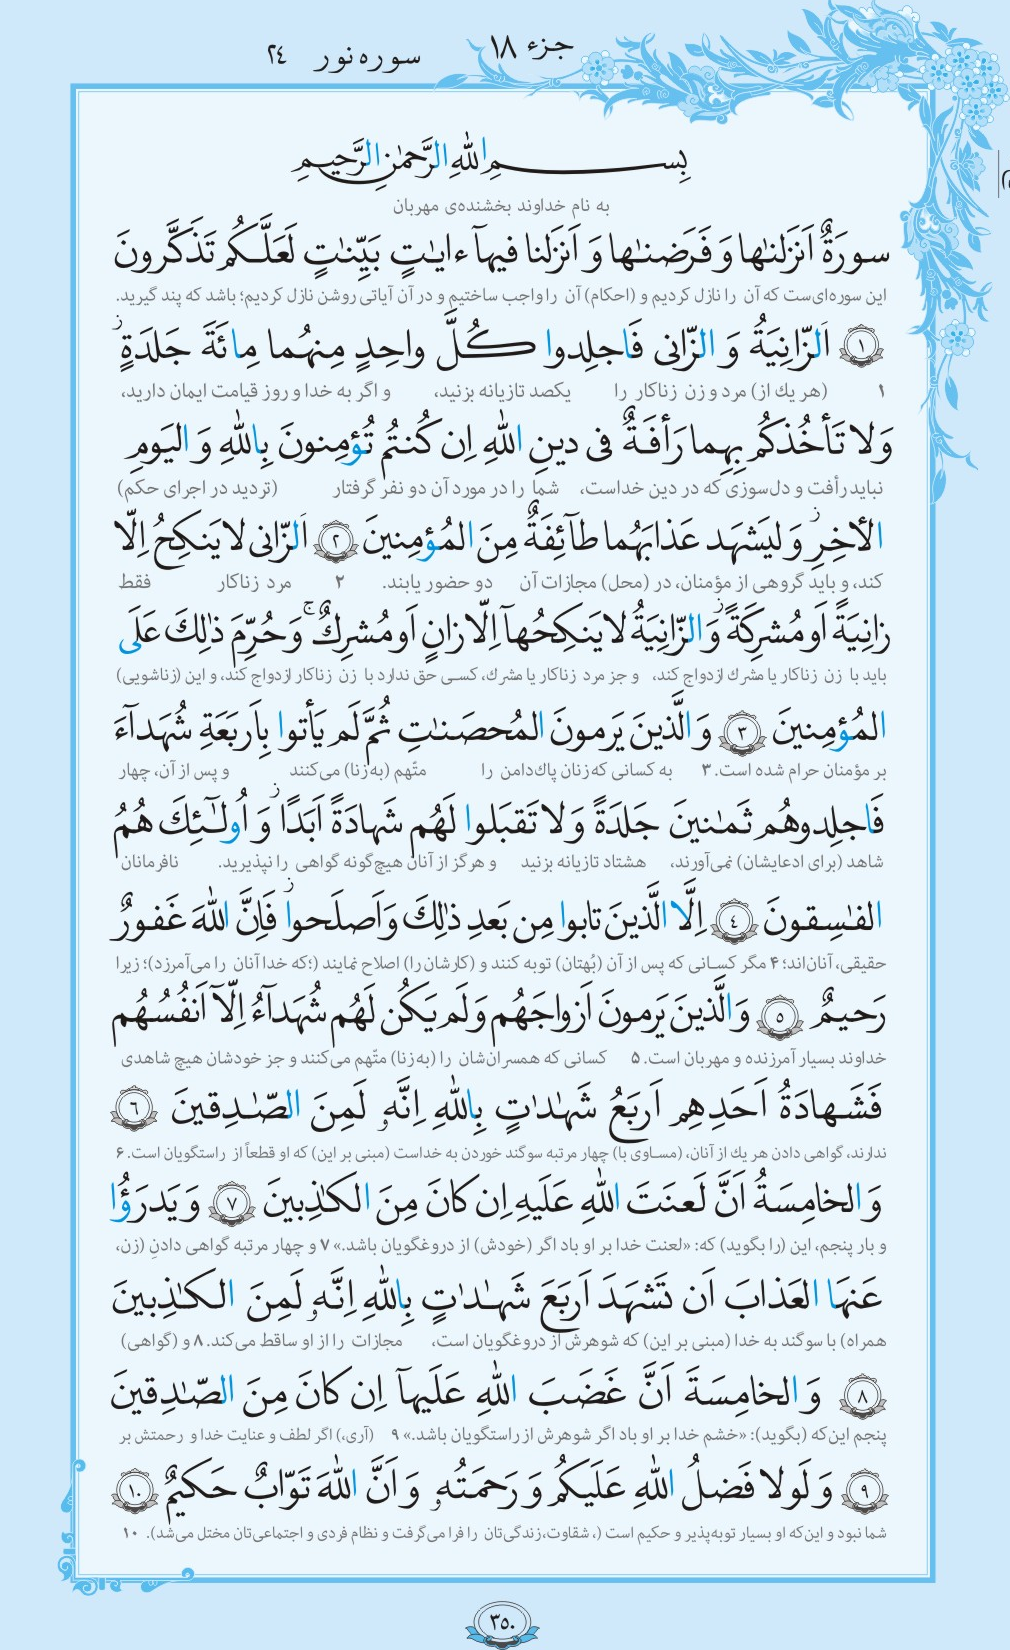 جزء ١٨
سوره نور ٢٤
بِسمِ اللهِ الرَّحمٰنِ الرَّحيمِ
به نام خداوند بخشنده‌ی مهربان
سورَةٌ اَنزَلنٰها وَ فَرَضنٰها وَ اَنزَلنا فيهآ ءايٰتٍ بَيِّنٰتٍ لَعَلَّكُم تَذَكَّرونَ
این سوره‌ای‌ست که آن را نازل کردیم و (احکام) آن را واجب ساختیم و در آن آیاتی روشن نازل کردیم؛ باشد که پند گیرید.
١ اَلزّانِيَةُ وَ الزّانى فَاجلِدوا كُلَّ واحِدٍ مِنهُما مِائَةَ جَلدَةٍ ز
۱ (هر یك از) مرد و زن زناکار را یکصد تازیانه بزنید، و اگر به خدا و روز قیامت ایمان دارید،
وَلا تَأخُذكُم بِهِما رَأفَةٌ فى دينِ اللهِ اِن كُنتُم تُؤمِنونَ بِاللهِ وَ اليَومِ
نباید رأفت و دل‌سوزی که در دین خداست، شما را در مورد آن دو نفر گرفتار (تردید در اجرای حکم)
الأخِرِ ز وَ ليَشهَد عَذابَهُما طآئِفَةٌ مِنَ المُؤمِنينَ ٢ اَلزّانى لا يَنكِحُ اِلّا
کند، و باید گروهی از مؤمنان، در (محل) مجازات آن دو حضور یابند. ۲ مرد زناکار فقط
زانِيَةً اَو مُشرِكَةً ز وَ الزّانِيَةُ لا يَنكِحُهآ اِلّا زانٍ اَو مُشرِكٌ ج وَ حُرِّمَ ذٰلِكَ عَلَى
باید با زن زناکار یا مشرك ازدواج کند، و جز مرد زناکار یا مشرك، کسی حق ندارد با زن زناکار ازدواج کند، و این (زناشویی)
المُؤمِنينَ ٣ وَ الَّذينَ يَرمونَ المُحصَنٰتِ ثُمَّ لَم يَأتوا بِاَربَعَةِ شُهَدآءَ
بر مؤمنان حرام شده است. ۳ به کسانی که زنان پاك‌دامن را متّهم (به زنا) می‌کنند و پس از آن، چهار
فَاجلِدوهُم ثَمٰنينَ جَلدَةً وَ لا تَقبَلوا لَهُم شَهادَةً اَبَدًا ز وَ اُولٰٓئِكَ هُمُ
شاهد (برای ادعایشان) نمی‌آورند، هشتاد تازیانه بزنید و هرگز از آنان هیچ‌گونه گواهی را نپذیرید. نافرمانان
الفٰسِقونَ ٤ اِلَّا الَّذينَ تابوا مِن بَعدِ ذٰلِكَ وَ اَصلَحوا ز فَاِنَّ اللهَ غَفورٌ
حقیقی، آنان‌اند؛ ۴ مگر کسانی که پس از آن (بُهتان) توبه کنند و (کارشان را) اصلاح نمایند (؛که خدا آنان را می‌آمرزد)؛ زیرا
رَحيمٌ ٥ وَ الَّذينَ يَرمونَ اَزواجَهُم وَ لَم يَكُن لَهُم شُهَدآءُ اِلّآ اَنفُسُهُم
خداوند بسیار آمرزنده و مهربان است. ۵ کسانی که همسران‌شان را (به زنا) متّهم می‌کنند و جز خودشان هیچ شاهدی
فَشَهادَةُ اَحَدِهِم اَربَعُ شَهٰدٰتٍ بِاللهِ اِنَّهو لَمِنَ الصّٰدِقينَ ٦
ندارند، گواهی دادن هر یك از آنان، (مساوی با) چهار مرتبه سوگند خوردن به خداست (مبنی بر این) که او قطعاً از راستگویان است. ۶
وَ الخامِسَةُ اَنَّ لَعنَتَ اللهِ عَلَيهِ اِن كانَ مِنَ الكٰذِبينَ ٧ وَ يَدرَؤُا
و بار پنجم، این (را بگوید) که: «لعنت خدا بر او باد اگر (خودش) از دروغگویان باشد.» ۷ و چهار مرتبه گواهی دادنِ (زن،
عَنهَا العَذابَ اَن تَشهَدَ اَربَعَ شَهٰدٰتٍ بِاللهِ اِنَّهو لَمِنَ الكٰذِبينَ
همراه) با سوگند به خدا (مبنی بر این) که شوهرش از دروغگویان است، مجازات را از او ساقط می‌کند. ۸ و (گواهی)
٨ وَ الخامِسَةَ اَنَّ غَضَبَ اللهِ عَلَيهآ اِن كانَ مِنَ الصّٰدِقينَ
پنجم این‌که (بگوید): «خشم خدا بر او باد اگر شوهرش از راستگویان باشد.» ۹ (آری،) اگر لطف و عنایت خدا و رحمتش بر
٩ وَ لَولا فَضلُ اللهِ عَلَيكُم وَ رَحمَتُهو وَ اَنَّ اللهَ تَوّابٌ حَكيمٌ ١٠
شما نبود و این‌که او بسیار توبه‌پذیر و حکیم است (، شقاوت، زندگی‌تان را فرا می‌گرفت و نظام فردی و اجتماعی‌تان مختل می‌شد). ۱۰
٣٥٠